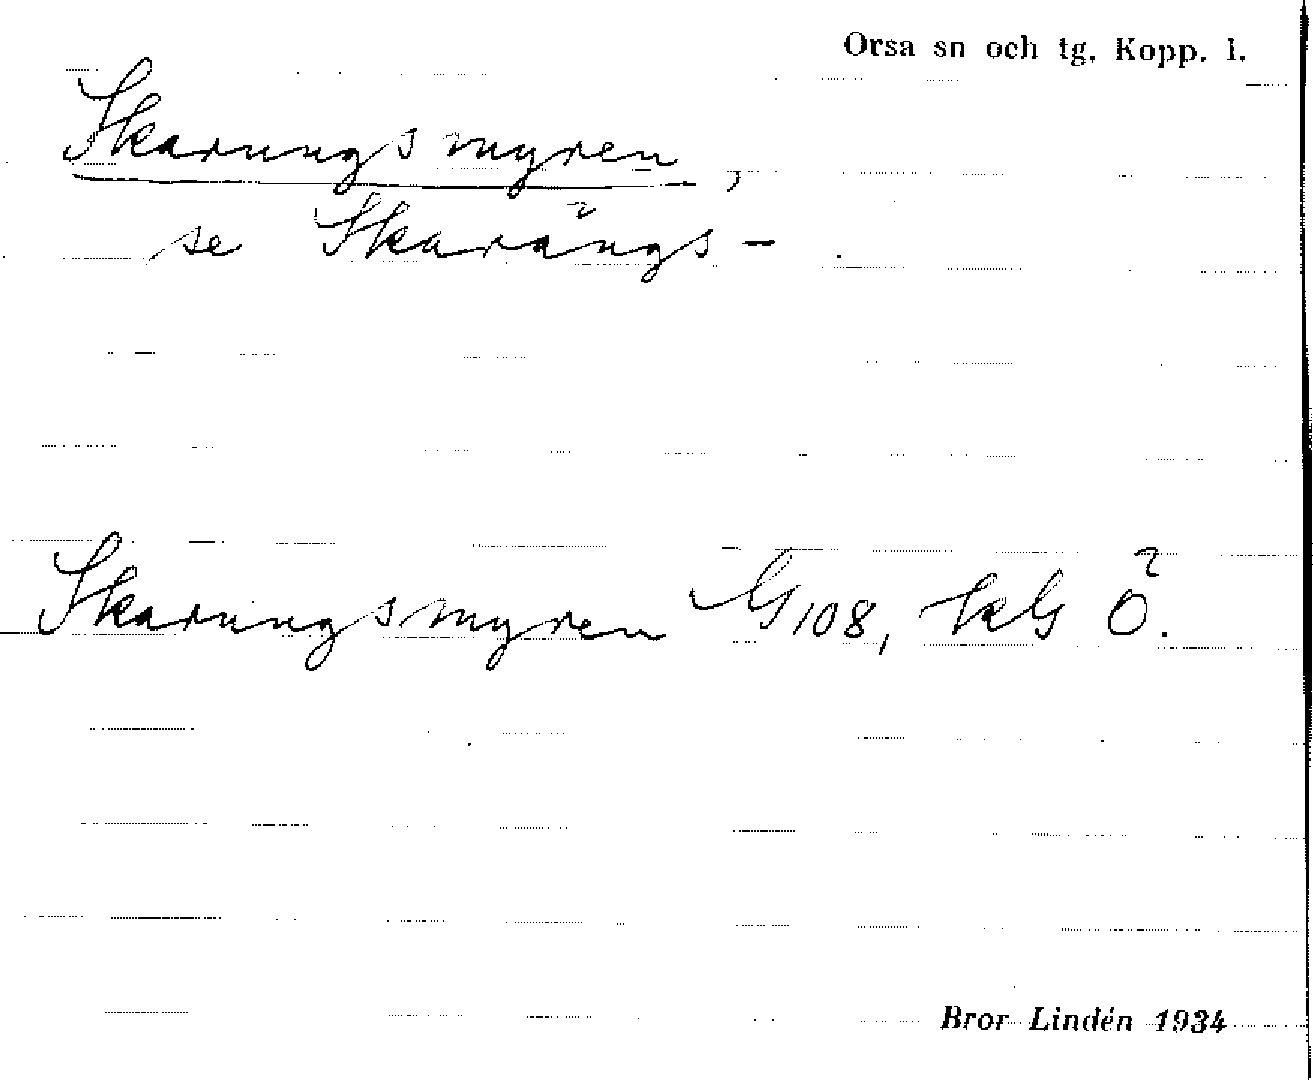 Orsa sn och tg. Kopp. l.
Skarungsmyren,
se Skarängs-
Skarungsmyren G108, kG Ö.
Bror Lindén 1934